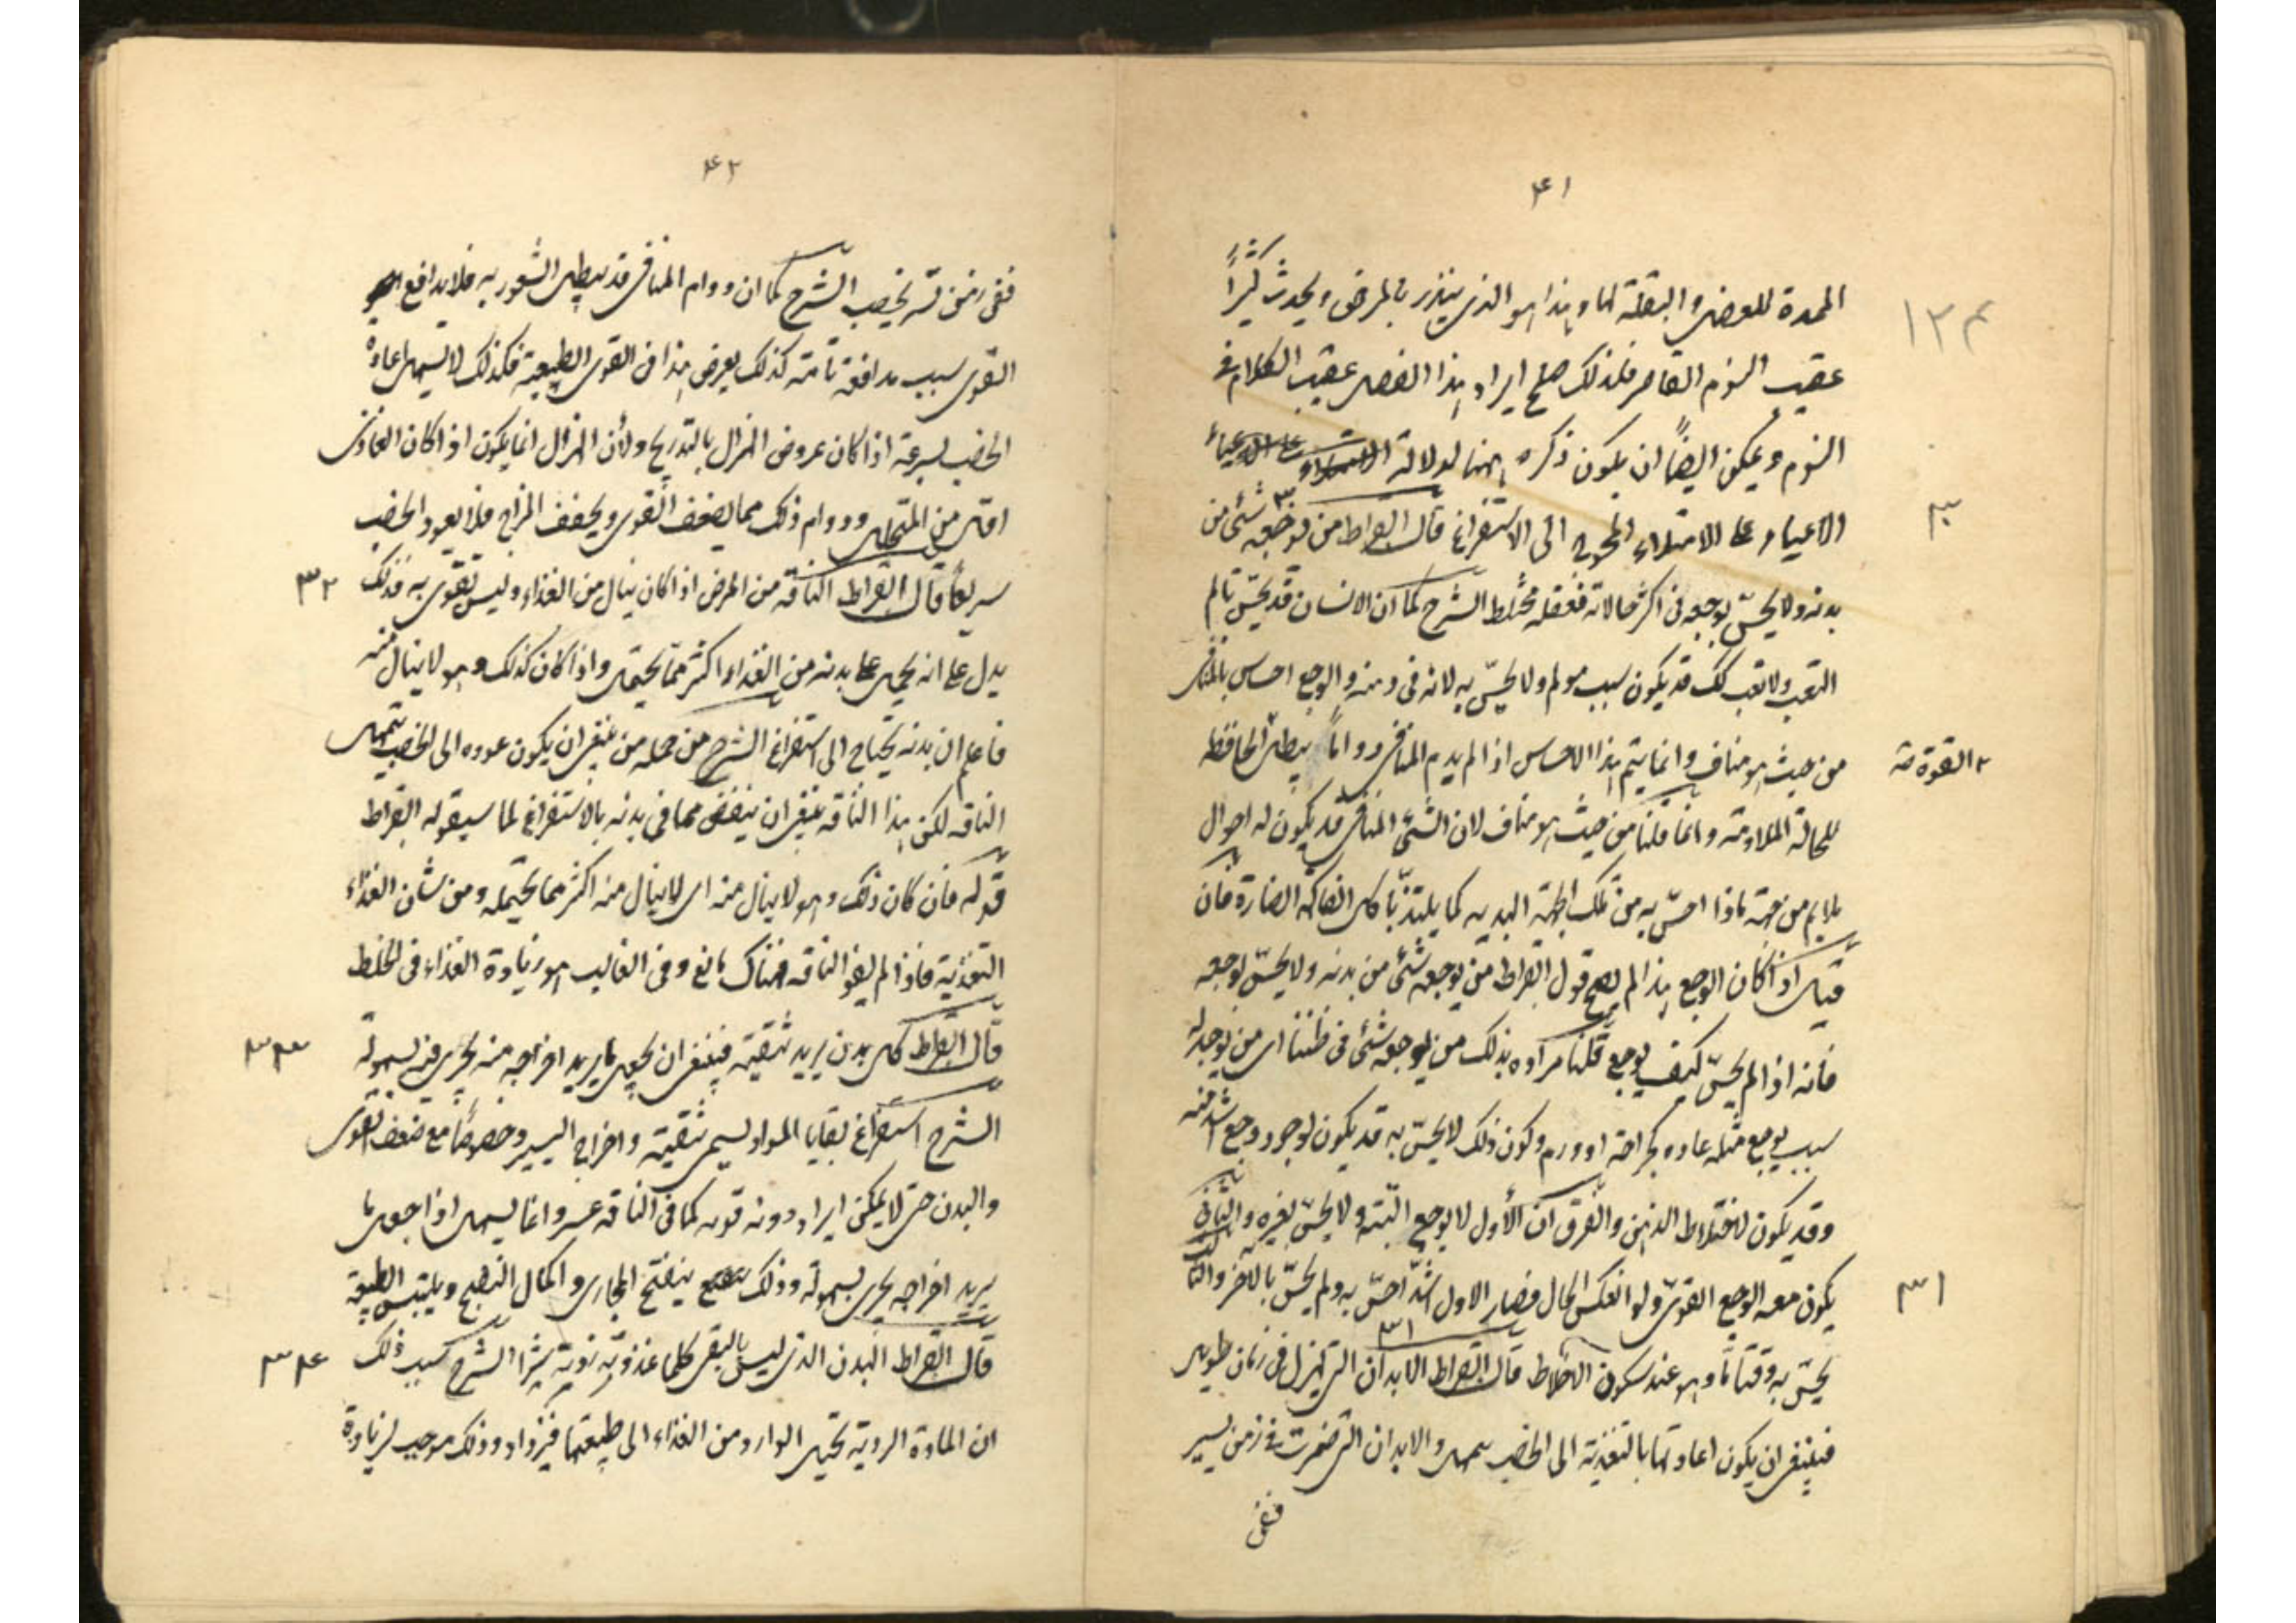 ٤١
الممدة للعضل والبقلة لها وهذا هو الذى ينذر بالمرض ويحدث كثيراً
١٢٤
عقيب النوم القاصر فلذلك صلح ايراد هذا الفصل عقيب الكلام فى
النوم ويمكن ايضاً ان يكون ذكره ههنا لدلالة
الاعياء على الامتلاء المحوج الى الاستفراغ قال ابقراط من يوجعه شئ من
٣٠
بدنه ولا يحسّ بوجعه فى اكثر حالاته فعقله مختلط الشرح كما ان الانسان قد يحسّ بألم
التعب ولا تعب كك قد يكون سبب مولم ولا يحسّ به لانه فى ذهنه والوجع احساس بالمنافى
من حيث هو مناف وانما يتم هذا الاحساس اذا لم يدم المنافى دواماً يبطل الحافظة
٢ القوة صح
للحالة الملاومة وانما قلنا من حيث هو مناف لان الشئ المنافى قد يكون له احوال
يلايم من جهة فاذا احسّ به من تلك الجهة التذ به كما يلتذ بأكل الفاكهة الضارة فان
قيل اذا كان الوجع هذا لم يصح قول ابقراط من يوجعه شئ من بدنه ولا يحسّ بوجعه
فانه اذا لم يحسّ كيف يوجع قلنا مراده بذلك من يوجعه شئ فى ظننا اى من يوجد له
سبب يوجع مثله عاده كجراحة او ورم وكون ذلك لا يحسّ به قد يكون لوجود وجع اشد منه
وقد يكون لاختلاط الذهن والفرق ان الأول لا يوجع البتة ولا يحسّ بغيره والثانى
يكون معه الوجع القوىّ ولو انعكس الحال فصار الاول اشدّ احسّ به ولم يحسّ بالاخر والثا
٣١
يحسّ به وقتاً مّا وهو عند سكون الاخلاط قال ابقراط الابدان التى تهزل فى زمان طويل
٣١
فينبغى ان يكون اعادتها بالتغذية الى الخصب بتمهل والابدان التى ضمرت فى زمن يسير
ففى
٤٢
ففى زمن يسير يخصب الشرح كما ان دوام المنافى قد يبطل الشعور به فلا يدافع
القوى سبب مدافعة تامّة كذلك يعرض هذا فى القوى الطبيعية فكذلك لا يسهل اعادة
الخصب بسرعة اذا كان عروض الهزال بالتدريج ولأن الهزال انما يكون اذا كان الغاذى
اقل من المتحلل ودوام ذلك مما يضعف القوى ويجفف المزاج فلا يعود الخصب
سريعاً قال ابقراط الناقه من المرض اذا كان ينال من الغذاء وليس يقوى به فذلك
٣٢
يدل على انه يحمل على بدنه من الغذاء اكثر ممّا يحتمل واذا كان كذلك وهو لا ينال منه
فاعلم ان بدنه يحتاج الى استفراغ الشرح من حمله من ينبغى ان يكون عوده الى الخصب بتمهل
الناقه لكن هذا الناقه ينبغى ان ينقص مما فى بدنه بالاستفراغ لما سيقوله ابقراط
قوله فان كان ذلك وهو لا ينال منه اى لا ينال منه اكثر مما يحتمله ومن شان الغذاء
التغذية فاذا لم يقو الناقه فهناك مانع وفى الغالب هو زيادة الغذاء فى الخلط
قال ابقراط كل بدن يريد تنقيته فينبغى ان يجعل ما يريد اخراجه منه يجرى فيه بسهولة
٣٣
الشرح استفراغ بقايا المواد يسمى تنقية واخراج اليسير وخصوصاً مع ضعف القوى
والبدن حتى لا يمكن ايراد دونه قويه كما فى الناقه عسر وانما يسهل اذا جعل ما
يريد اخراجه يجرى بسهولة وذلك بتفتيح المجارى واكمال النضج وبتليين الطبيعة
قال ابقراط البدن الذى ليس بالنقى كلما غذوته زدته شرا الشرح سبب ذلك
٣٤
ان المادة الردية تحيل الوارد من الغذاء الى طبيعتها فتزداد وذلك موجب لزيادة